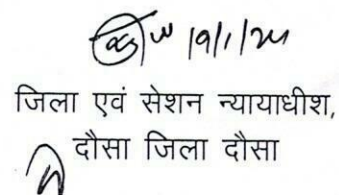 19/1/24
जिला एवं सेशन न्यायाधीश,
दौसा जिला दौसा